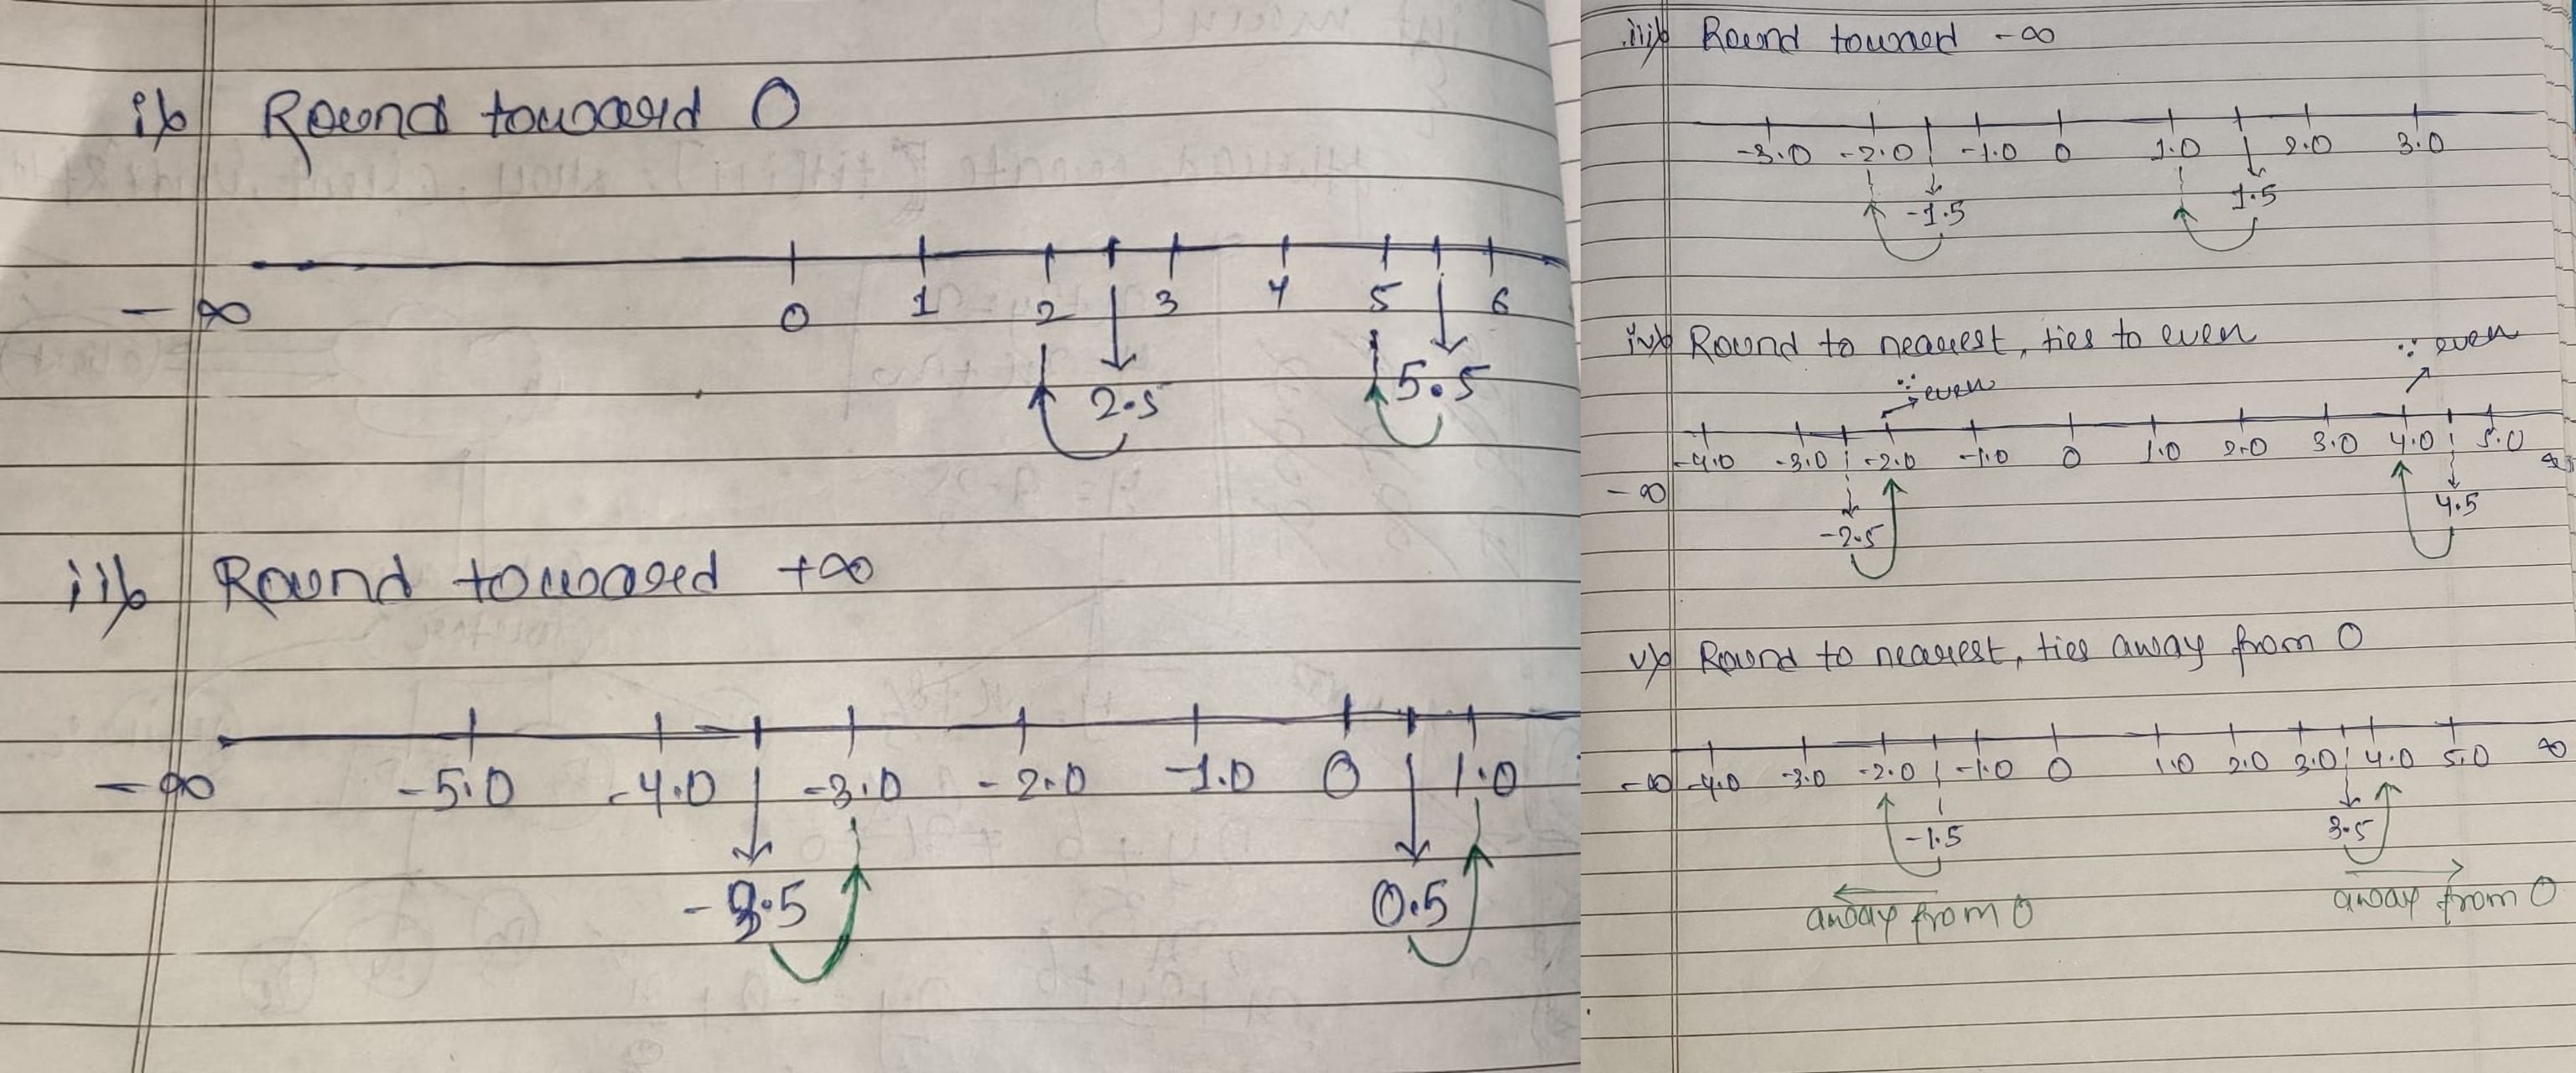 i) Round toward 0
0 1 2 3 4 5 6
- ∞
2.5 5.5
ii) Round toward +∞
- ∞ -5.0 -4.0 -3.0 -2.0 -1.0 0 1.0
-3.5 0.5
iii) Round toward -∞
-3.0 -2.0 -1.0 0 1.0 2.0 3.0
-1.5 1.5
iv) Round to nearest, ties to even
∵ even ∵ even
-4.0 -3.0 -2.0 -1.0 0 1.0 2.0 3.0 4.0 5.0 ∞
-∞
-2.5 4.5
v) Round to nearest, ties away from 0
-∞ -4.0 -3.0 -2.0 -1.0 0 1.0 2.0 3.0 4.0 5.0 ∞
-1.5 3.5
away from 0 away from 0